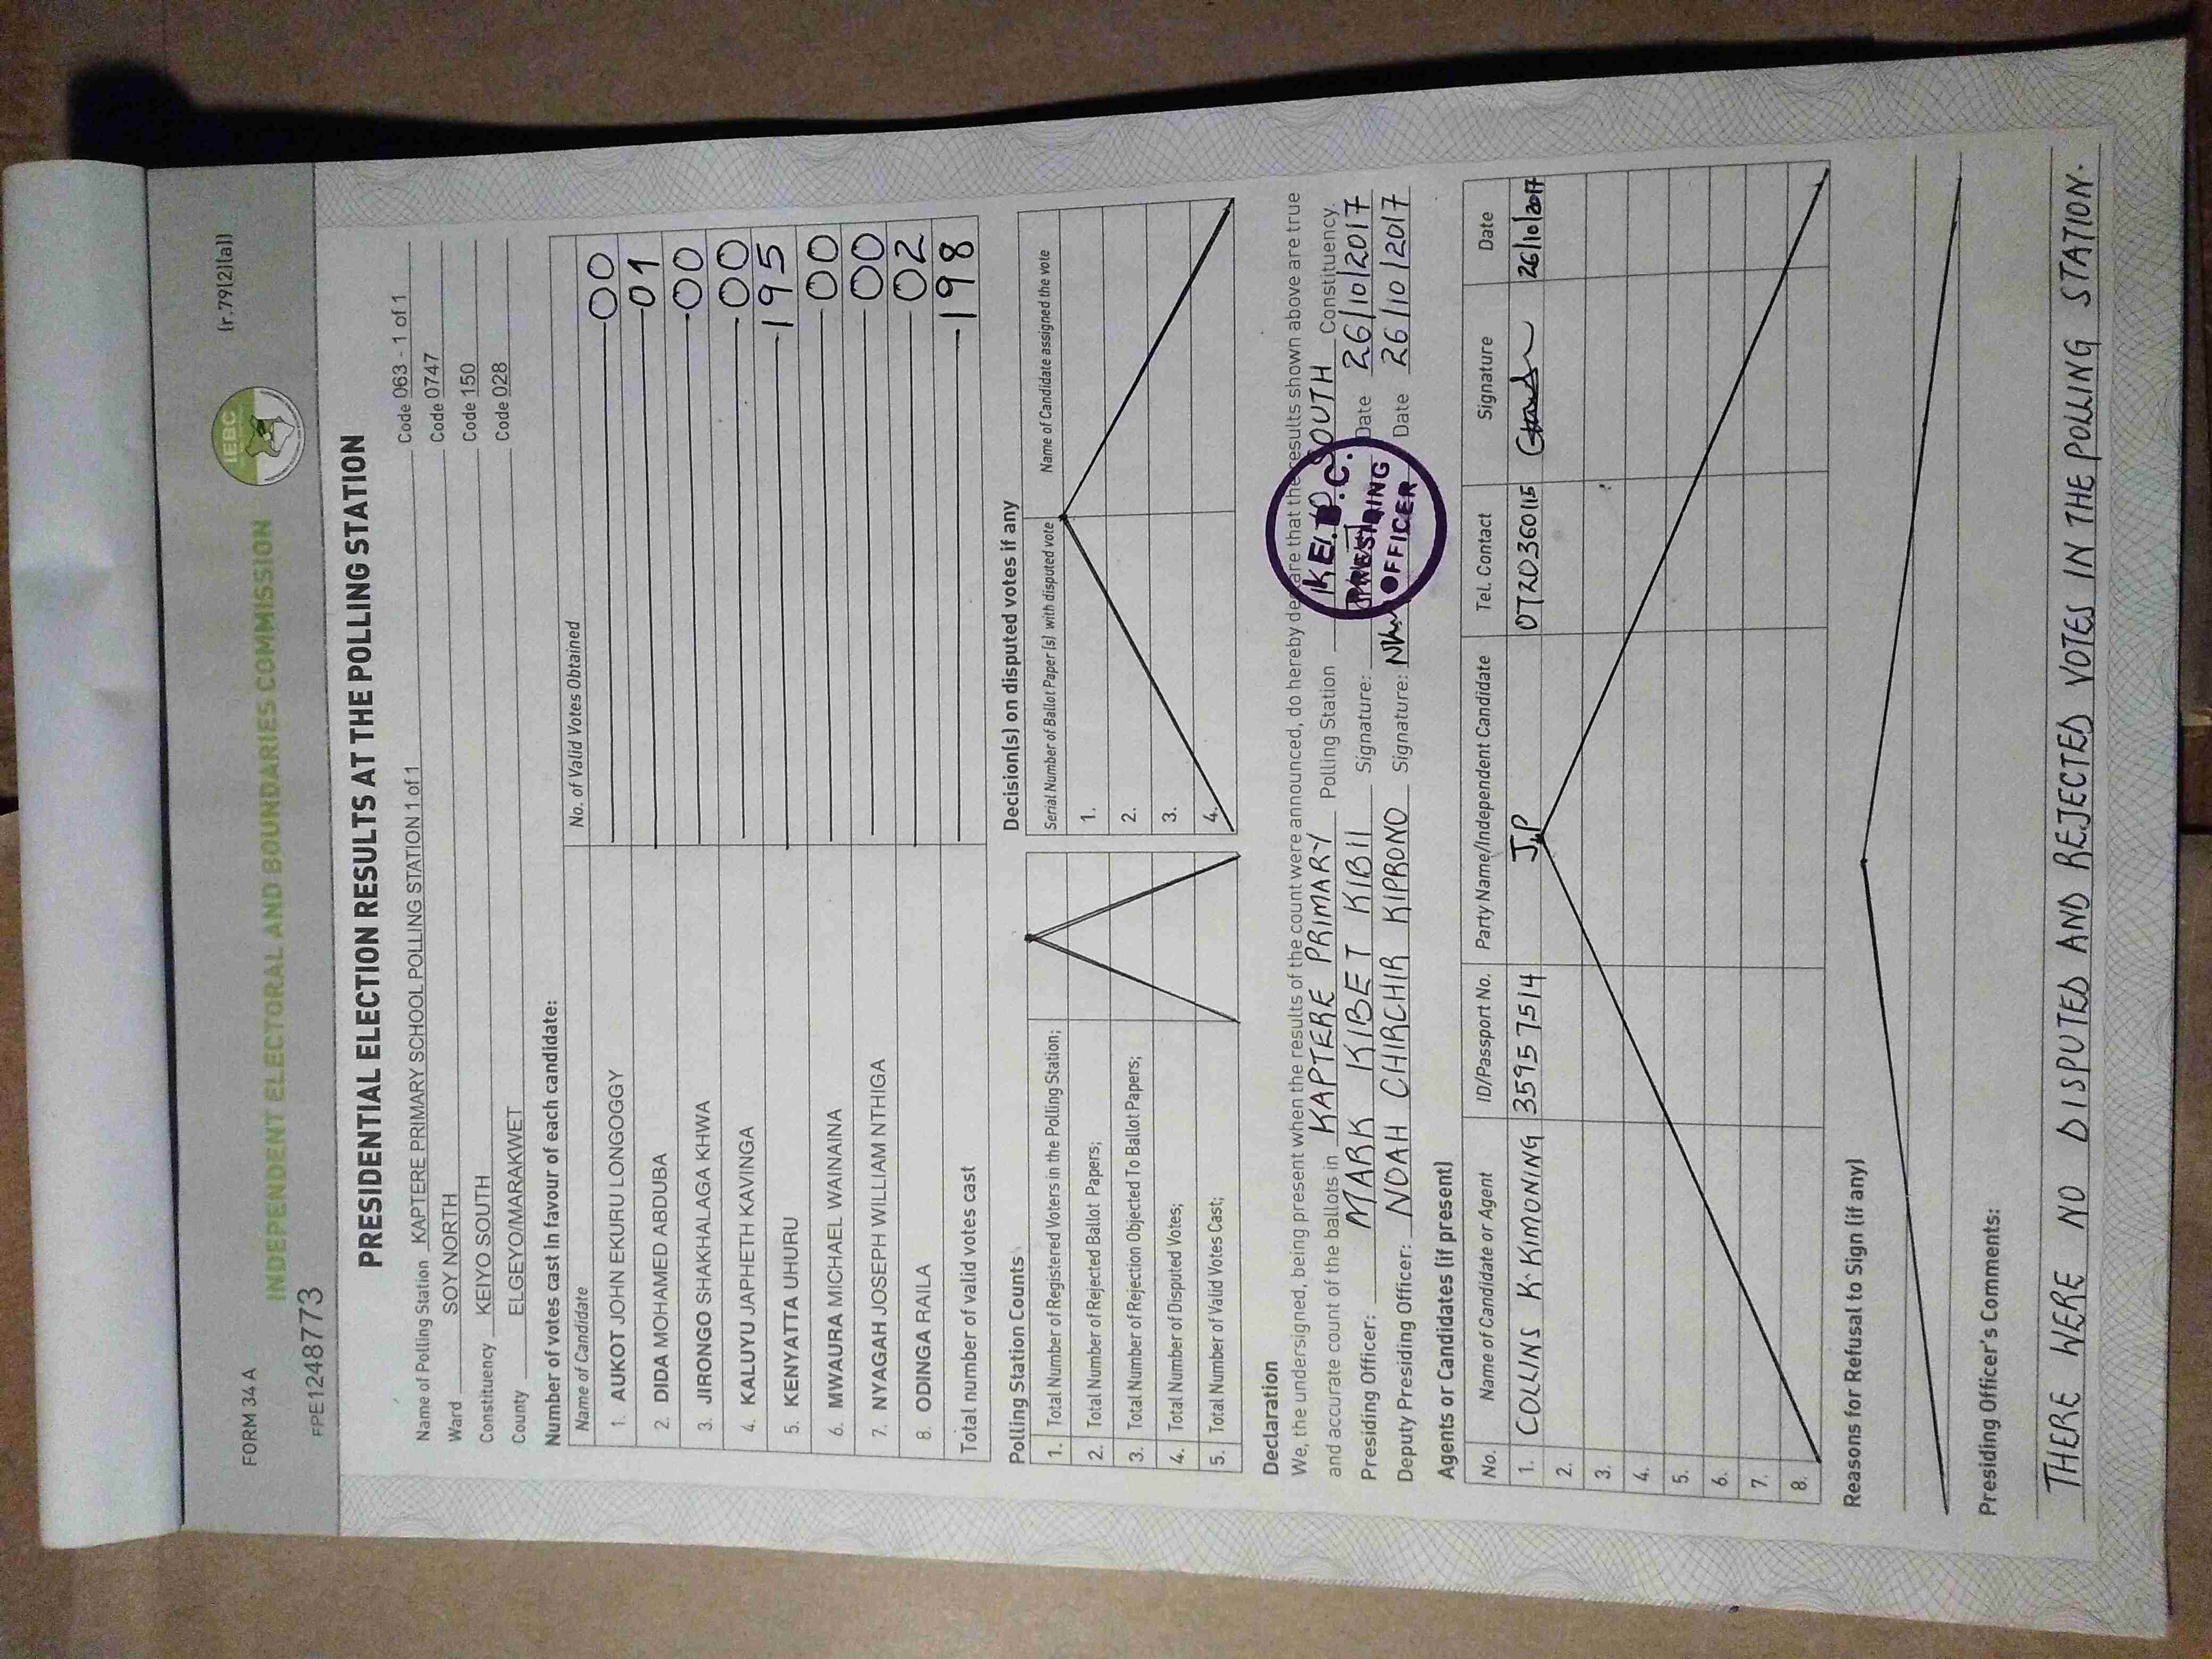 FORM 34 A
(r.79(2)(a))
IEBC
INDEPENDENT ELECTORAL AND BOUNDARIES COMMISSION
FPE1248773
PRESIDENTIAL ELECTION RESULTS AT THE POLLING STATION
Name of Polling Station KAPTERE PRIMARY SCHOOL POLLING STATION 1 of 1 Code 063 - 1 of 1
Ward SOY NORTH Code 0747
Constituency KEIYO SOUTH Code 150
County ELGEYO/MARAKWET Code 028
Number of votes cast in favour of each candidate:
Name of Candidate No. of Valid Votes Obtained
1. AUKOT JOHN EKURU LONGOGGY 00
2. DIDA MOHAMED ABDUBA 01
3. JIRONGO SHAKHALAGA KHWA 00
4. KALUYU JAPHETH KAVINGA 00
5. KENYATTA UHURU 195
6. MWAURA MICHAEL WAINAINA 00
7. NYAGAH JOSEPH WILLIAM NTHIGA 00
8. ODINGA RAILA 02
Total number of valid votes cast 198
Polling Station Counts
1. Total Number of Registered Voters in the Polling Station;
2. Total Number of Rejected Ballot Papers;
3. Total Number of Rejection Objected To Ballot Papers;
4. Total Number of Disputed Votes;
5. Total Number of Valid Votes Cast;
Decision(s) on disputed votes if any
Serial Number of Ballot Paper (s) with disputed vote Name of Candidate assigned the vote
1.
2.
3.
4.
Declaration
We, the undersigned, being present when the results of the count were announced, do hereby declare that the results shown above are true
and accurate count of the ballots in KAPTERE PRIMARY Polling Station SOUTH Constituency.
Presiding Officer: MARK KIBET KIBII Signature: Date 26/10/2017
Deputy Presiding Officer: NOAH CHIRCHIR KIPRONO Signature: Date 26/10/2017
PRESIDING
OFFICER
Agents or Candidates (if present)
No. Name of Candidate or Agent ID/Passport No. Party Name/Independent Candidate Tel. Contact Signature Date
1. COLLINS K. KIMONING 35957514 J.P 0720360115 26/10/2017
2.
3.
4.
5.
6.
7.
8.
Reasons for Refusal to Sign (if any)
Presiding Officer's Comments:
THERE WERE NO DISPUTED AND REJECTED VOTES IN THE POLLING STATION.